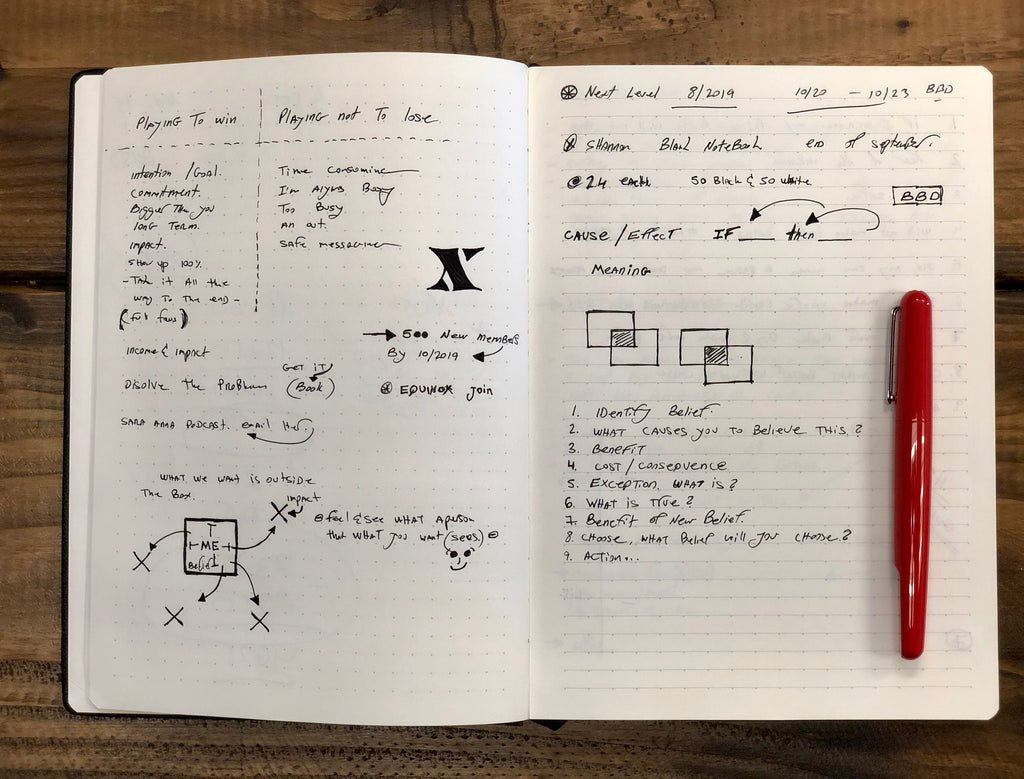 Playing To win
Playing not To lose
intention / Goal.
commitment.
Bigger Than you
long Term.
impact.
Show up 100%
- Take it All the
way To The end -
Time consoming
Too Busy
An out.
Safe
income & impact
Disolve the Problem
GET iT
(Book)
SARA podcast. email Her.
500 New members
By 10/2019
EQUINOX Join
WHAT WE WANT is OUTSIDE
The Box.
impact
I
ME
Belief
Feel & see WHAT A person
that WHAT you want (sees)
Next Level 8/2019 10/20 - 10/23 BBD
SHANNON Blank NoteBook end of september.
24 each 50 Black & 50 white
BBD
CAUSE / Effect IF ___ then ___
Meaning
1. IDentify Belief.
2. WHAT CAUSES you To Believe THIS?
3. Benefit
4. COST / consequence
5. EXCEPTION, WHAT is?
6. WHAT is True?
7. Benefit of New Belief.
8. CHOOSE, WHAT Belief will you choose?
9. ACTION...